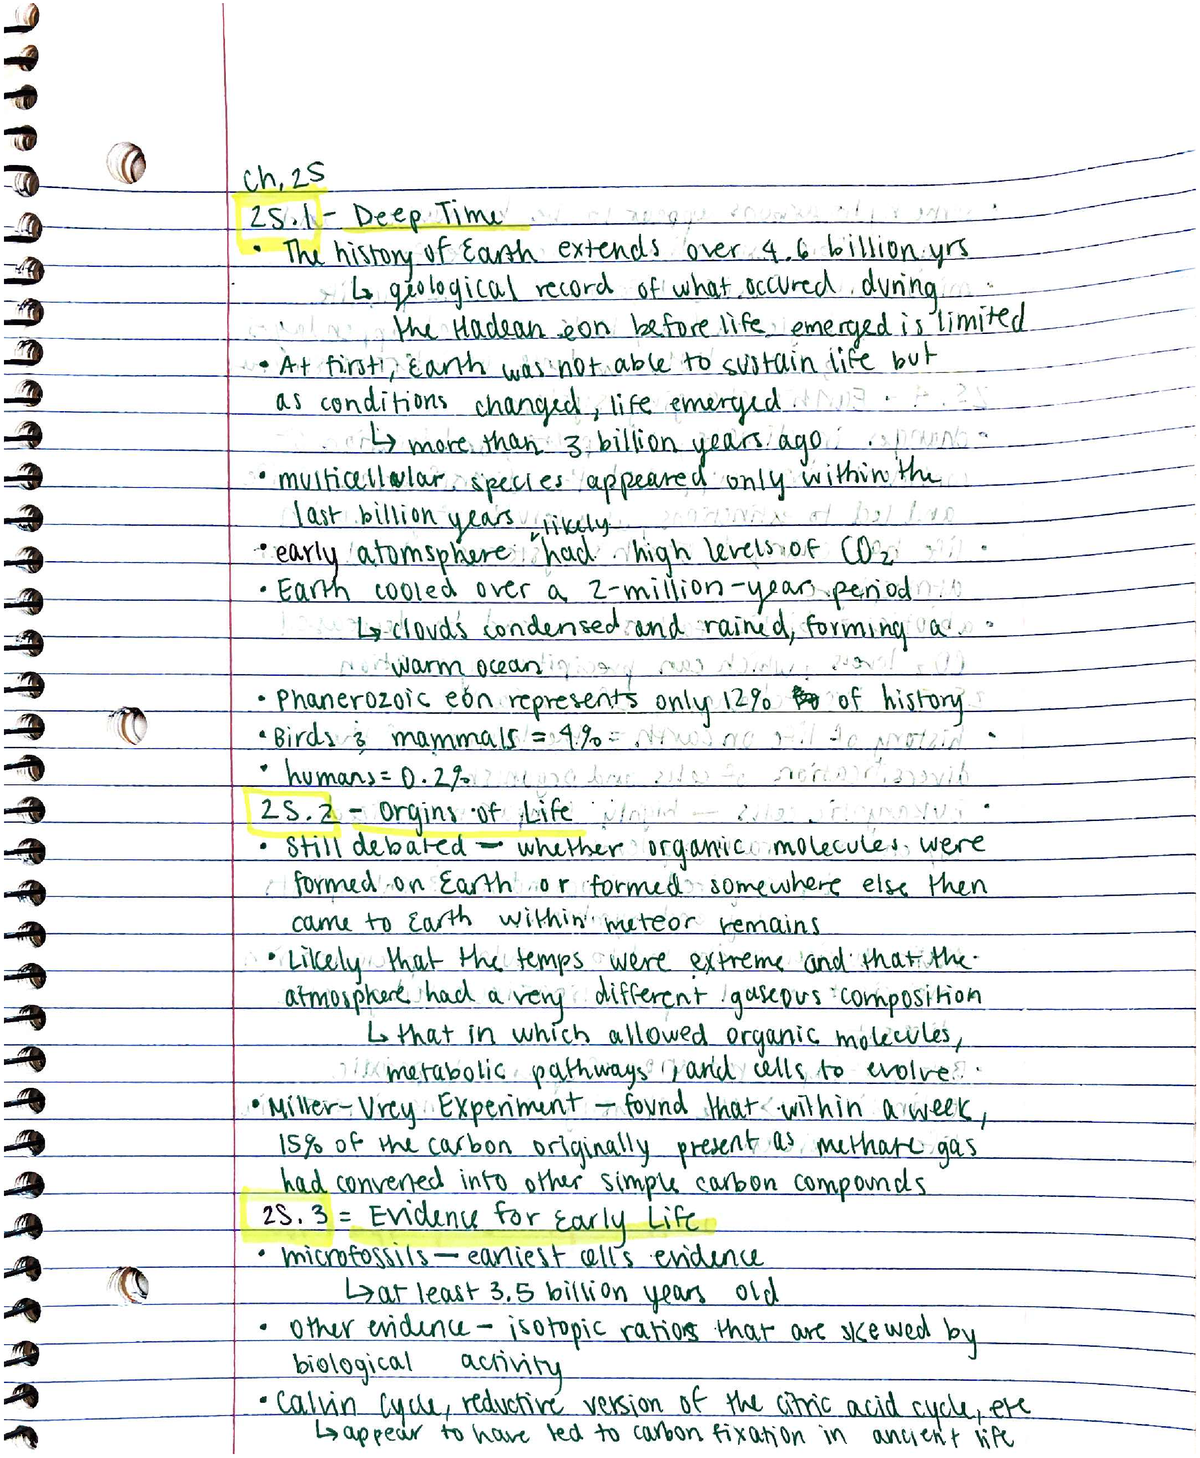 Ch. 25
25.1 - Deep Time
• The history of Earth extends over 4.6 billion yrs
↳ geological record of what occured during
the Hadean eon before life emerged is limited
• At first, Earth was not able to sustain life but
as conditions changed, life emerged
↳ more than 3 billion years ago
• multicellular species appeared only within the
last billion years
• early atomsphere likely had high levels of CO2
• Earth cooled over a 2-million-year period
↳ clouds condensed and rained, forming a
warm ocean
• Phanerozoic eon represents only 12% of history
• Birds & mammals = 4%
• humans = 0.2%
25.2 - Orgins of Life
• Still debated - whether organic molecules were
formed on Earth or formed somewhere else then
came to Earth within meteor remains
• Likely that the temps were extreme and that the
atmosphere had a very different gaseous composition
↳ that in which allowed organic molecules,
metabolic pathways, and cells to evolve
• Miller-Urey Experiment - found that within a week,
15% of the carbon originally present as methane gas
had converted into other simple carbon compounds
25.3 = Evidence for Early Life
• microfossils - earliest cells evidence
↳ at least 3.5 billion years old
• other evidence - isotopic ratios that are skewed by
biological activity
• Calvin Cycle, reductive version of the citric acid cycle, etc
↳ appear to have led to carbon fixation in ancient life